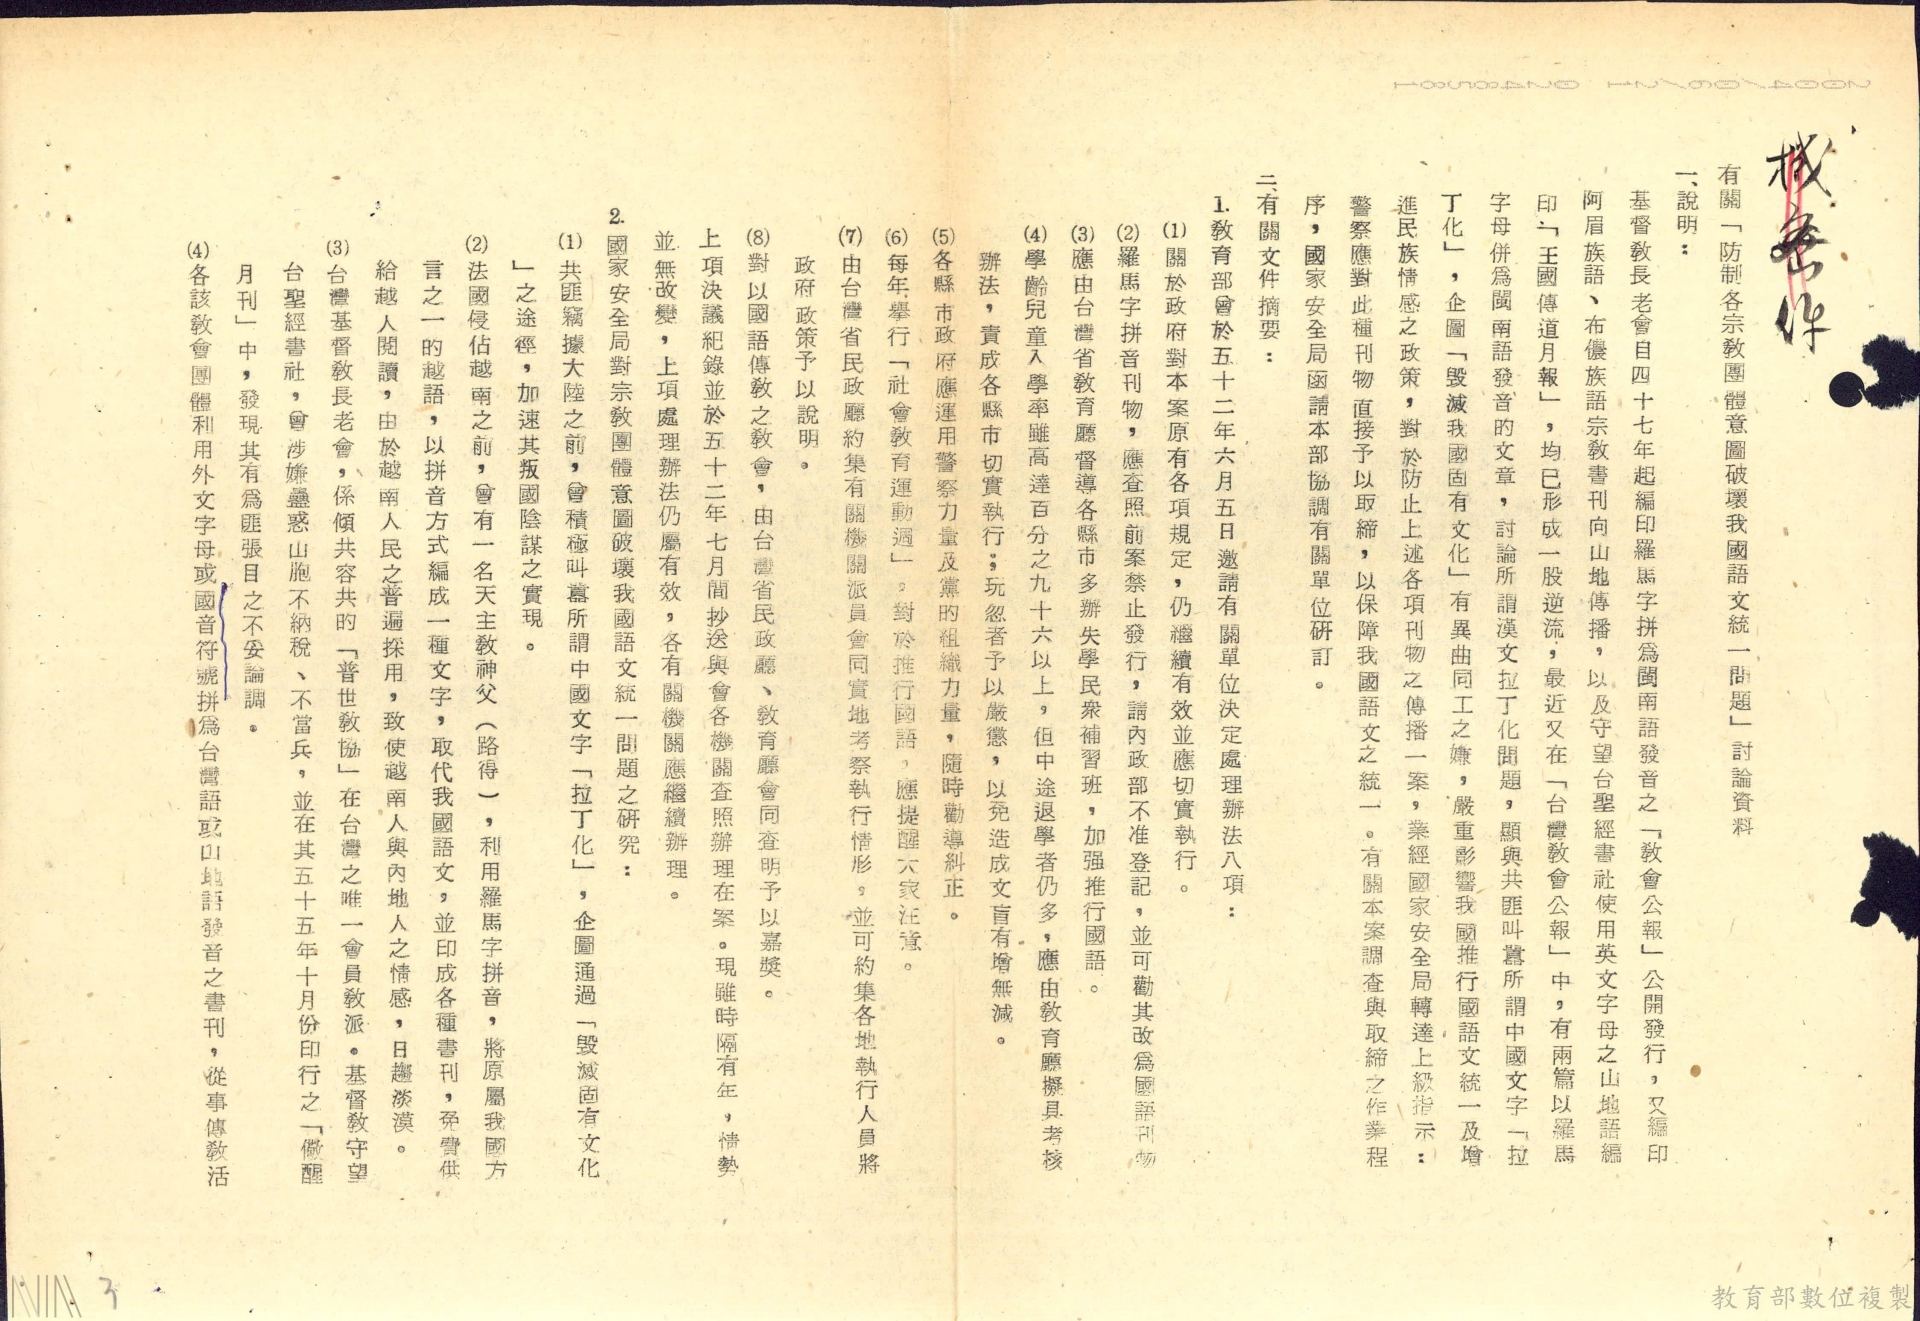 機密件
有關「防制各宗教團體意圖破壞我國語文統一問題」討論資料
一、說明：
基督教長老會自四十七年起編印羅馬字拼爲閩南語發音之「教會公報」公開發行，又編印
阿眉族語、布儂族語宗教書刊向山地傳播，以及守望台聖經書社使用英文字母之山地語編
印「王國傳道月報」，均已形成一股逆流，最近又在「台灣教會公報」中，有兩篇以羅馬
字母併爲閩南語發音的文章，討論所謂漢文拉丁化問題，顯與共匪叫囂所謂中國文字「拉
丁化」，企圖「毀滅我國固有文化」有異曲同工之嫌，嚴重影響我國推行國語文統一及增
進民族情感之政策，對於防止上述各項刊物之傳播一案，業經國家安全局轉達上級指示：
警察應對此種刊物直接予以取締，以保障我國語文之統一。有關本案調查與取締之作業程
序，國家安全局函請本部協調有關單位研訂。
二、有關文件摘要：
1.教育部曾於五十二年六月五日邀請有關單位決定處理辦法八項：
(1)關於政府對本案原有各項規定，仍繼續有效並應切實執行。
(2)羅馬字拼音刊物，應查照前案禁止發行，請內政部不准登記，並可勸其改爲國語刊物
(3)應由台灣省教育廳督導各縣市多辦失學民衆補習班，加强推行國語。
(4)學齡兒童入學率雖高達百分之九十六以上，但中途退學者仍多，應由教育廳擬具考核
辦法，責成各縣市切實執行；玩忽者予以嚴懲，以免造成文盲有增無減。
(5)各縣市政府應運用警察力量及黨的組織力量，隨時勸導糾正。
(6)每年舉行「社會教育運動週」，對於推行國語，應提醒大家注意。
(7)由台灣省民政廳約集有關機關派員會同實地考察執行情形，並可約集各地執行人員將
政府政策予以說明。
(8)對以國語傳教之教會，由台灣省民政廳、教育廳會同查明予以嘉獎。
上項決議紀錄並於五十二年七月間抄送與會各機關查照辦理在案。現雖時隔有年，情勢
並無改變，上項處理辦法仍屬有效，各有關機關應繼續辦理。
2.國家安全局對宗教團體意圖破壞我國語文統一問題之研究：
(1)共匪竊據大陸之前，曾積極叫囂所謂中國文字「拉丁化」，企圖通過「毀滅固有文化
」之途徑，加速其叛國陰謀之實現。
(2)法國侵佔越南之前，曾有一名天主教神父（路得），利用羅馬字拼音，將原屬我國方
言之一的越語，以拼音方式編成一種文字，取代我國語文，並印成各種書刊，免費供
給越人閱讀，由於越南人民之普遍採用，致使越南人與內地人之情感，日趨淡漠。
(3)台灣基督教長老會，係傾共容共的「普世教協」在台灣之唯一會員教派。基督教守望
台聖經書社，曾涉嫌蠱惑山胞不納稅、不當兵，並在其五十五年十月份印行之「儆醒
月刊」中，發現其有爲匪張目之不妥論調。
(4)各該教會團體利用外文字母或國音符號拼爲台灣語或山地語發音之書刊，從事傳教活
3
教育部數位複製
2004/06/21 0248581